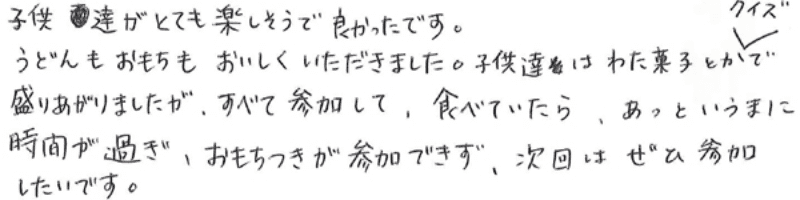 子供達がとても楽しそうで良かったです。
うどんもおもちもおいしくいただきました。子供達はわた菓子とかクイズで
盛りあがりましたが、すべて参加して、食べていたら、あっというまに
時間が過ぎ、おもちつきが参加できず、次回はぜひ参加
したいです。